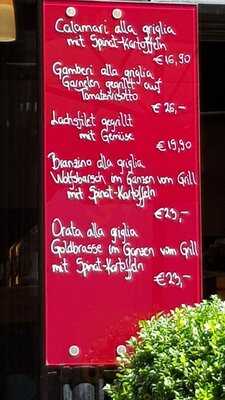 Calamari alla griglia
mit Spinat-Kartoffeln
€ 16,90
Gamberi alla griglia
Garnelen gegrillt auf
Tomatenrisotto
€ 26,-
Lachsfilet gegrillt
mit Gemüse
€ 19,90
Branzino alla griglia
Wolfsbarsch im Ganzen vom Grill
mit Spinat-Kartoffeln
€ 25,-
Orata alla griglia
Goldbrasse im Ganzen vom Grill
mit Spinat-Kartoffeln
€ 23,-